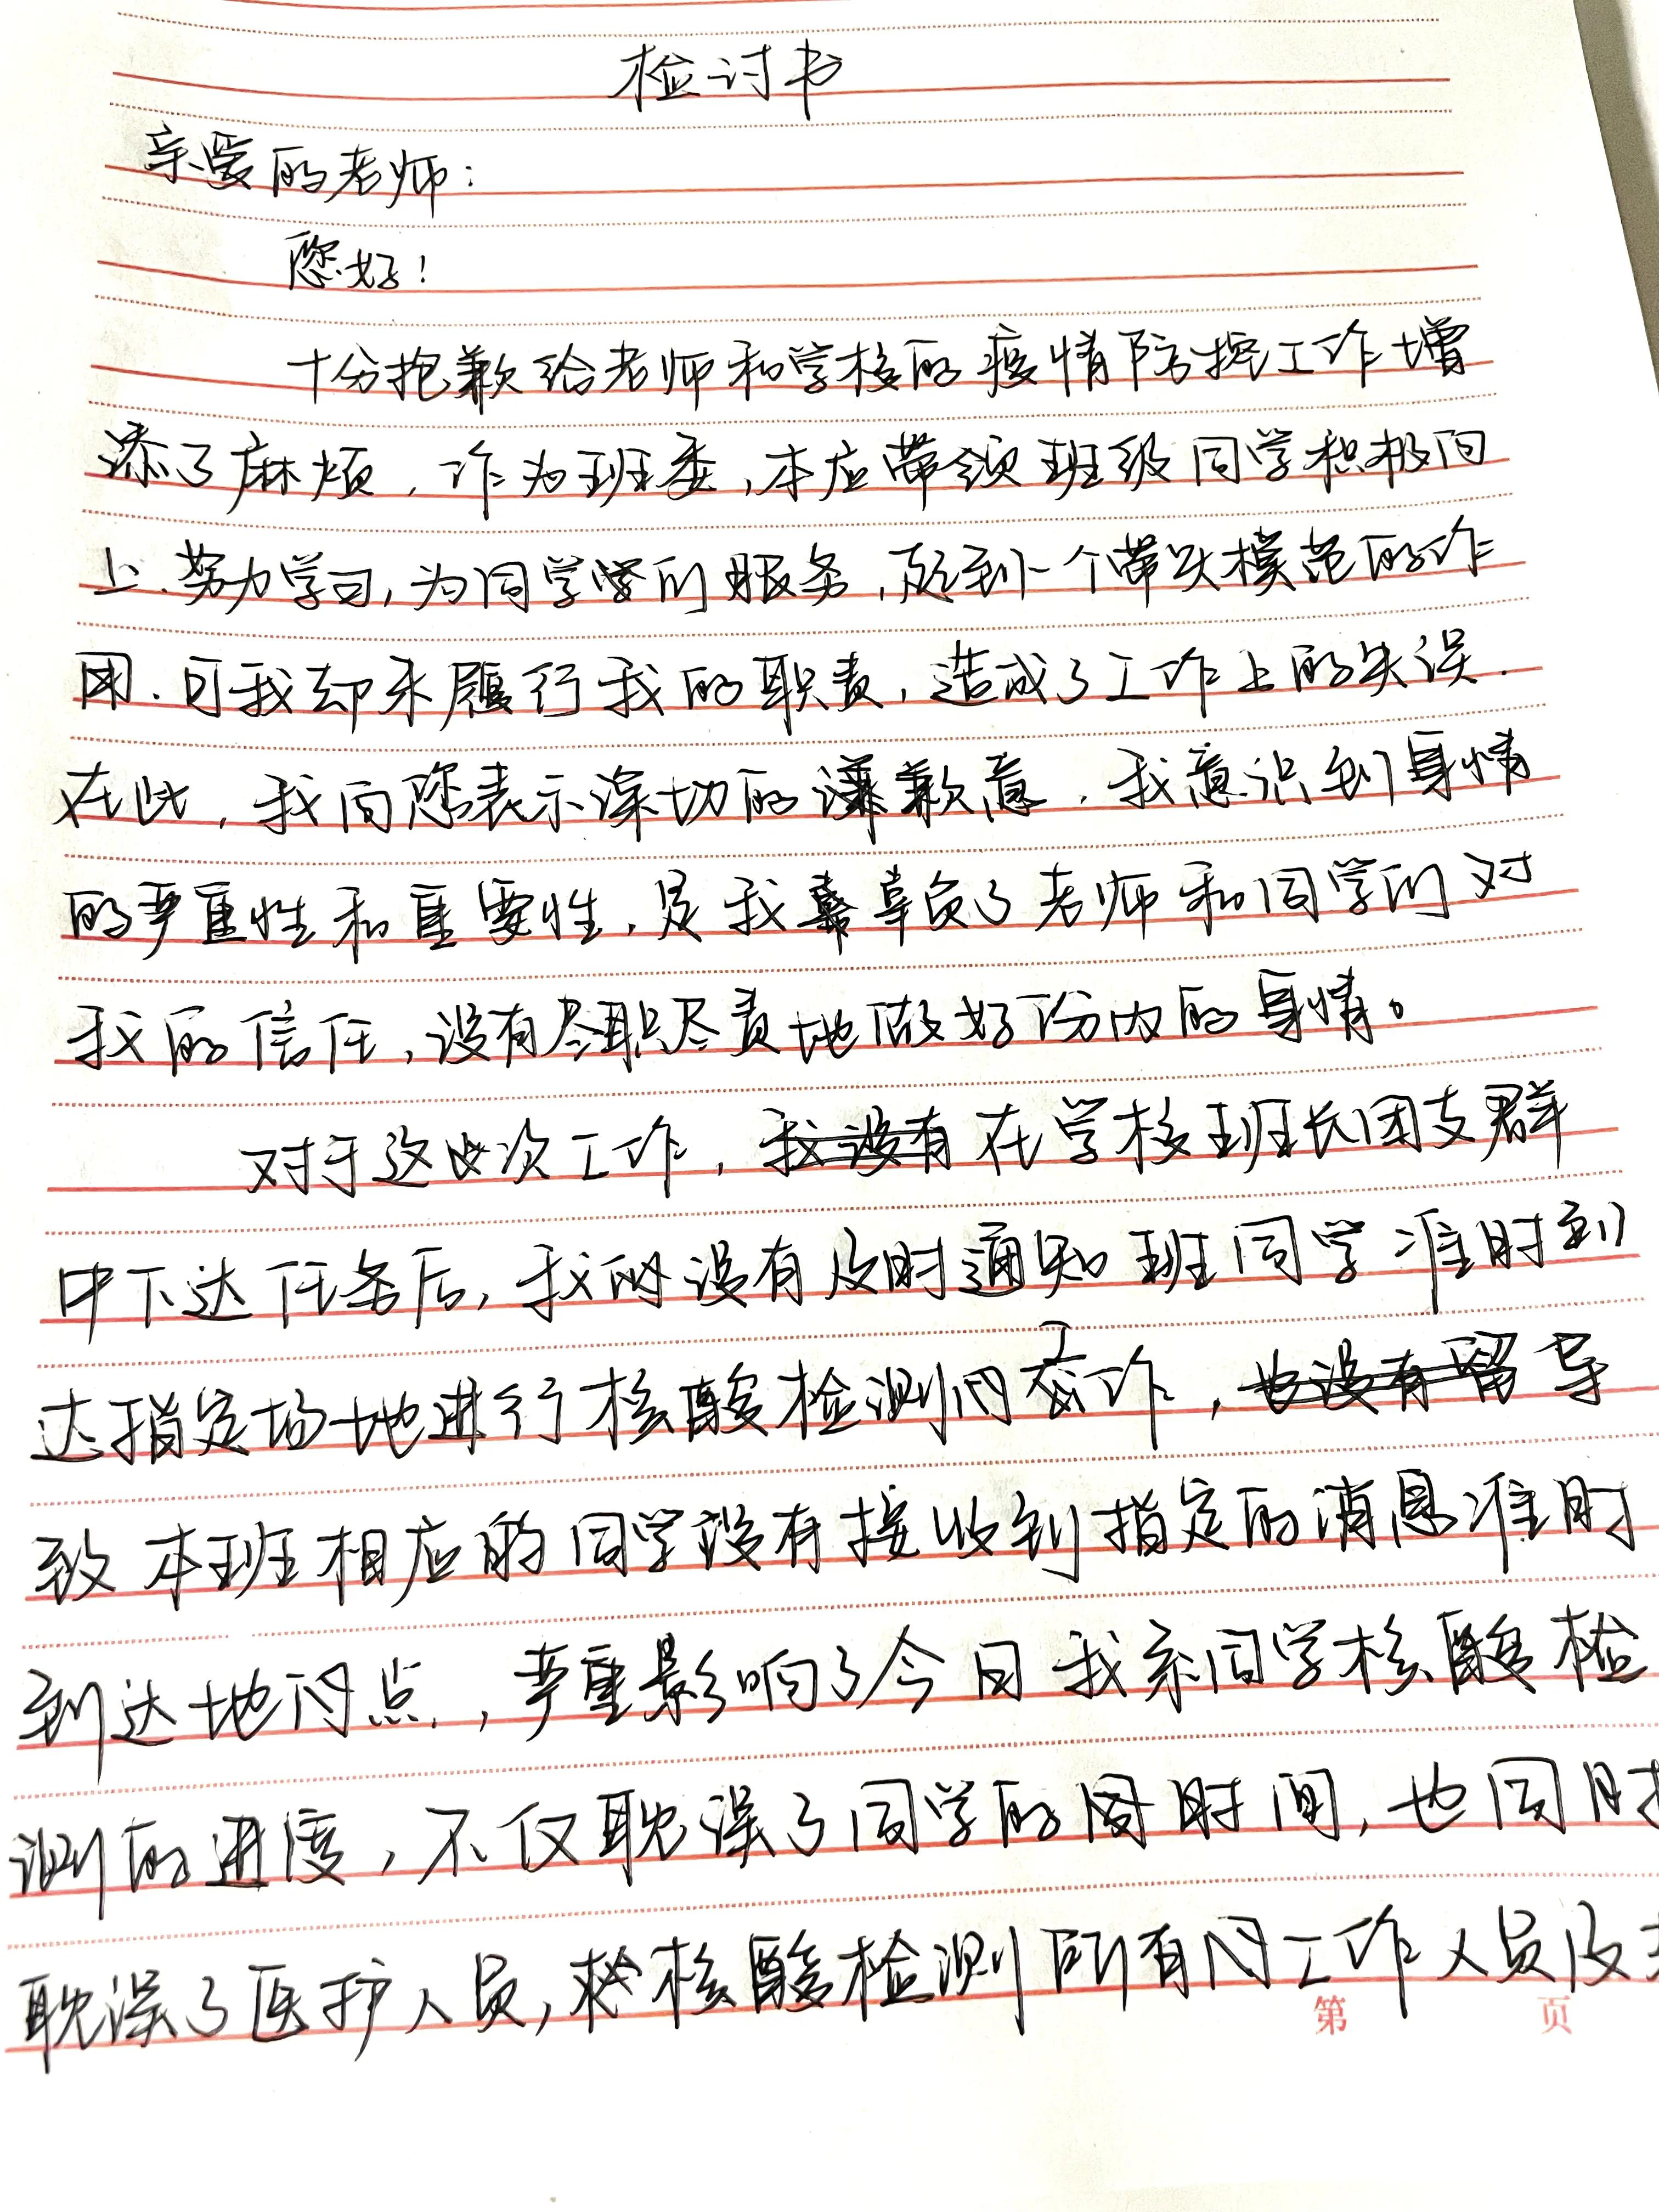 检讨书
亲爱的老师：
您好！
十分抱歉给老师和学校的疫情防控工作增
添了麻烦，作为班委，本应带领班级同学积极向
上.努力学习，为同学们服务，起到一个带头模范的作
用.可我却未履行我的职责，造成了工作上的失误.
在此，我向您表示深切的歉意，我意识到事情
的严重性和重要性，是我辜负了老师和同学们对
我的信任，没有尽职尽责地做好份内的事情。
对于这次工作，在学校班长团支群
中下达任务后，我没有及时通知班同学准时到
达指定场地进行核酸检测工作，导
致本班相应的同学没有接收到指定的消息准时
到达地点，严重影响了今日我系同学核酸检
测的进度，不仅耽误了同学的时间，也同时
耽误了医护人员，核酸检测所有工作人员及
第 页